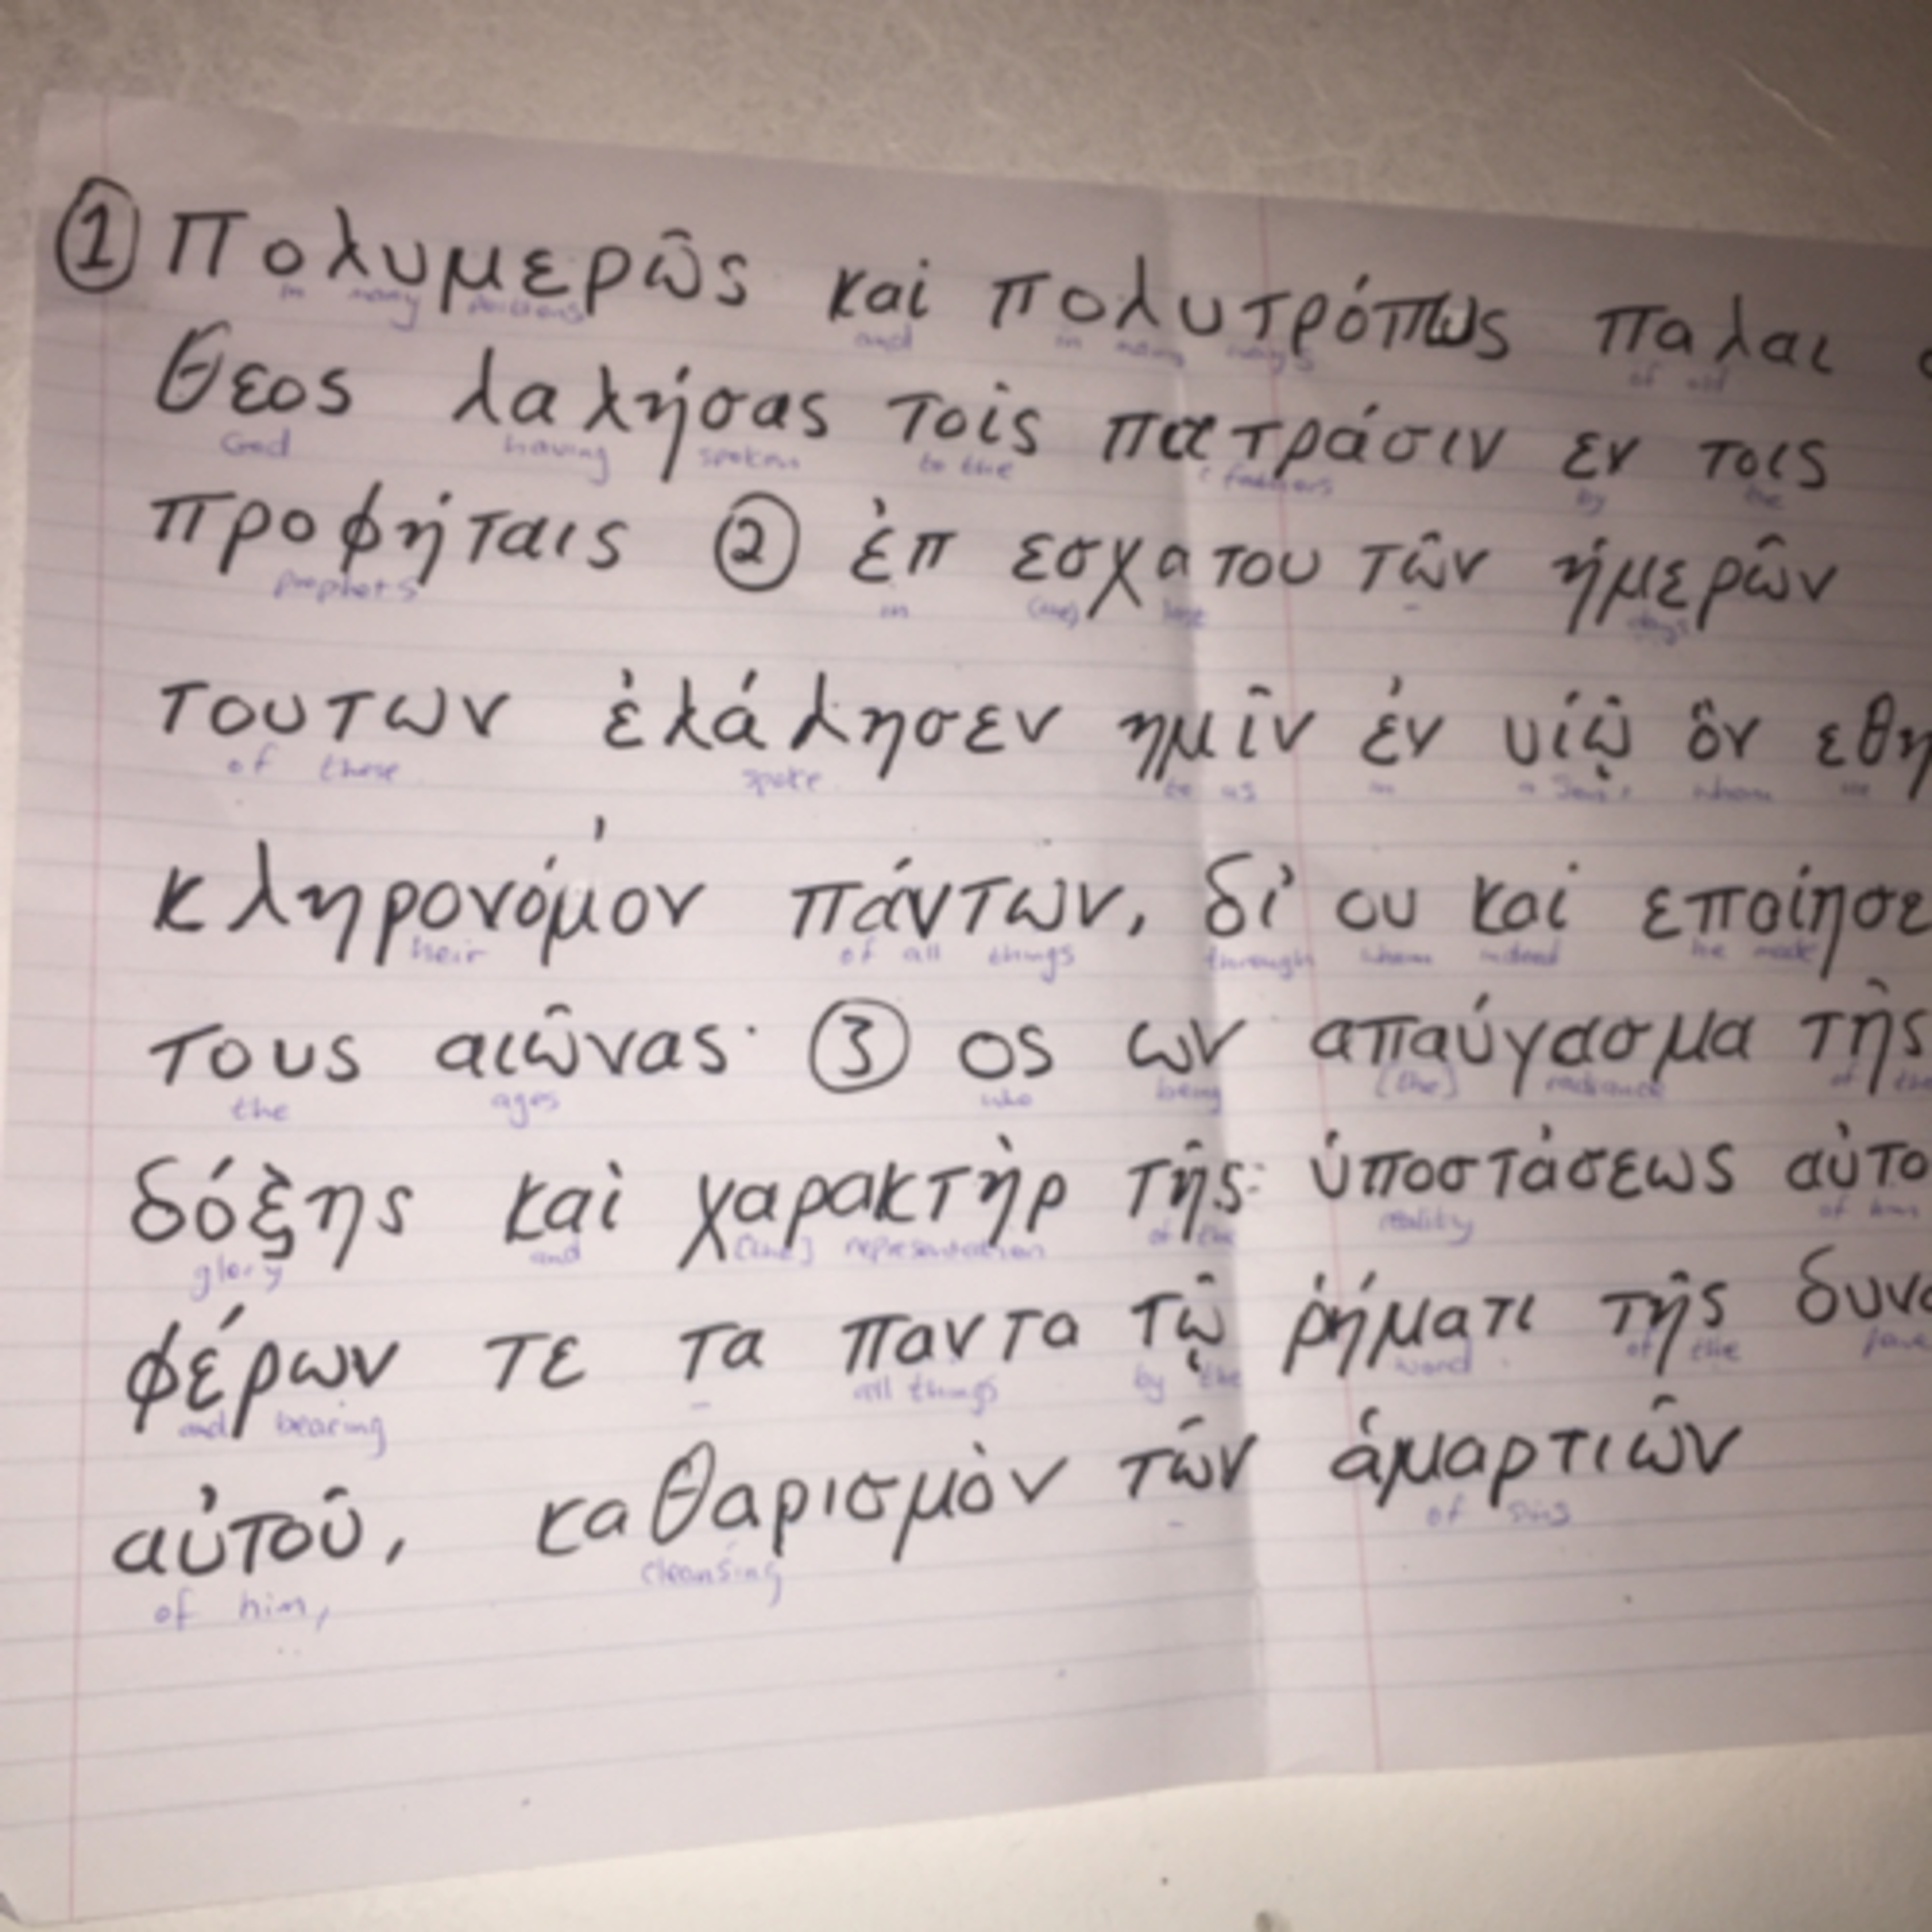 ① Πολυμερῶς καί πολυτρόπως παλαι
in many portions and in many ways of old
θεος λαλήσας τοίς πατράσιν εν τοις
God having spoken to the fathers by the
προφήταις ② ἐπ εσχατου τῶν ἡμερῶν
prophets in (the) last - days
τουτων ἐλάλησεν ημῖν ἐν υίῷ ὅν εθη
of these spoke to us in a Son, whom
κληρονόμον πάντων, δι' ου καί εποίησε
heir of all things through whom indeed he made
τους αιῶνας· ③ ος ων απαύγασμα τῆς
the ages who being [the] radiance of the
δόξης καὶ χαρακτὴρ τῆς ὑποστάσεως αὐτο
glory and [the] representation of the reality of him
φέρων τε τα παντα τῷ ῥήματι τῆς δυνα
and bearing - all things by the word of the
αὐτοῦ, καθαρισμὸν τῶν ἁμαρτιῶν
of him, cleansing - of sins